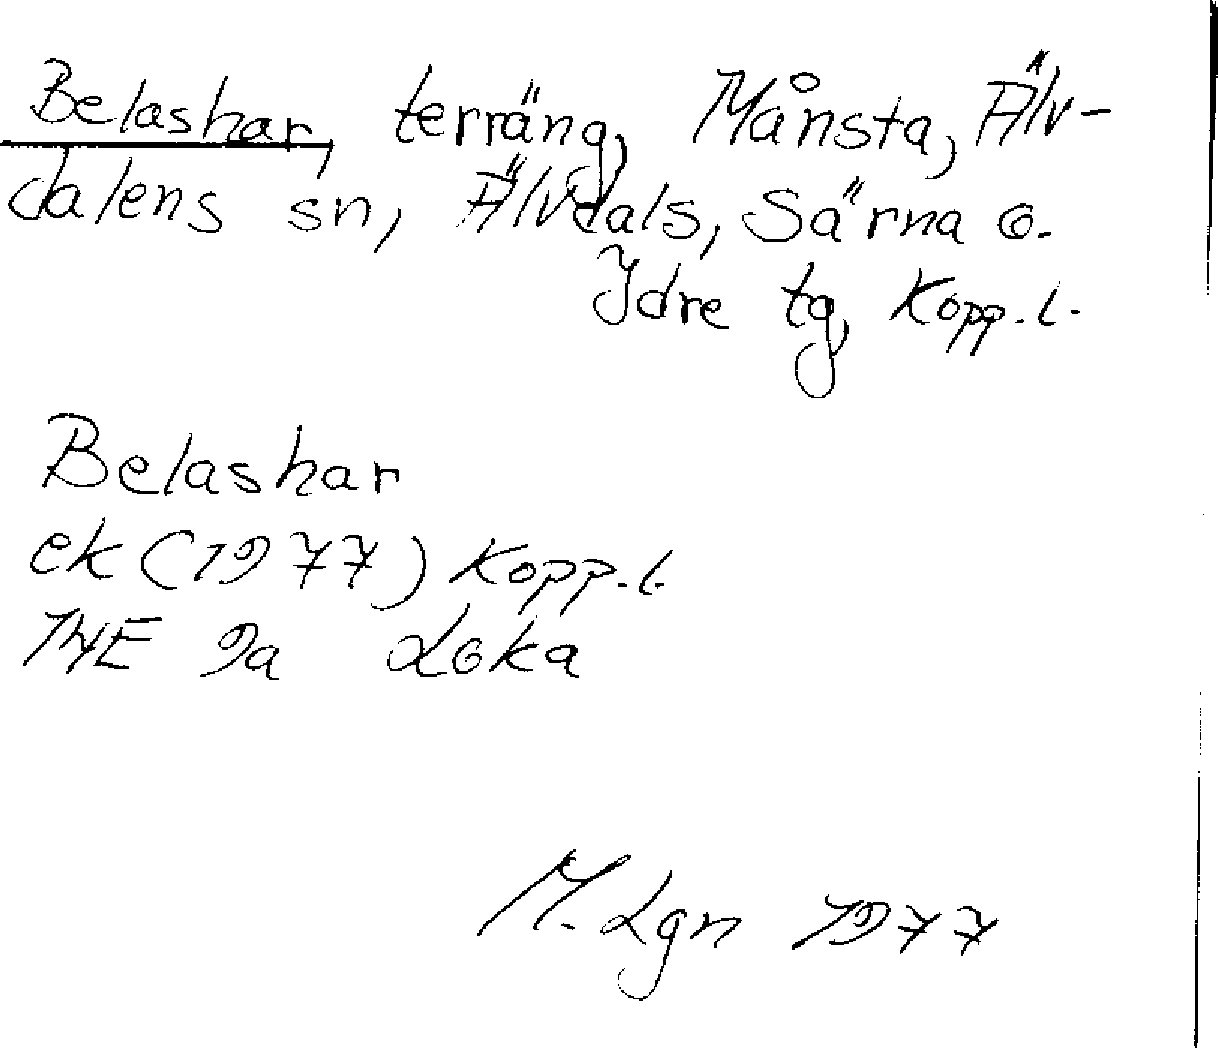 Belashar, terräng, Månsta, Älv-
dalens sn, Älvdals, Särna o.
Idre tg, Kopp. l.
Belashar
ek (1977) Kopp. l.
14E 9a Loka
M. Lgn 1977